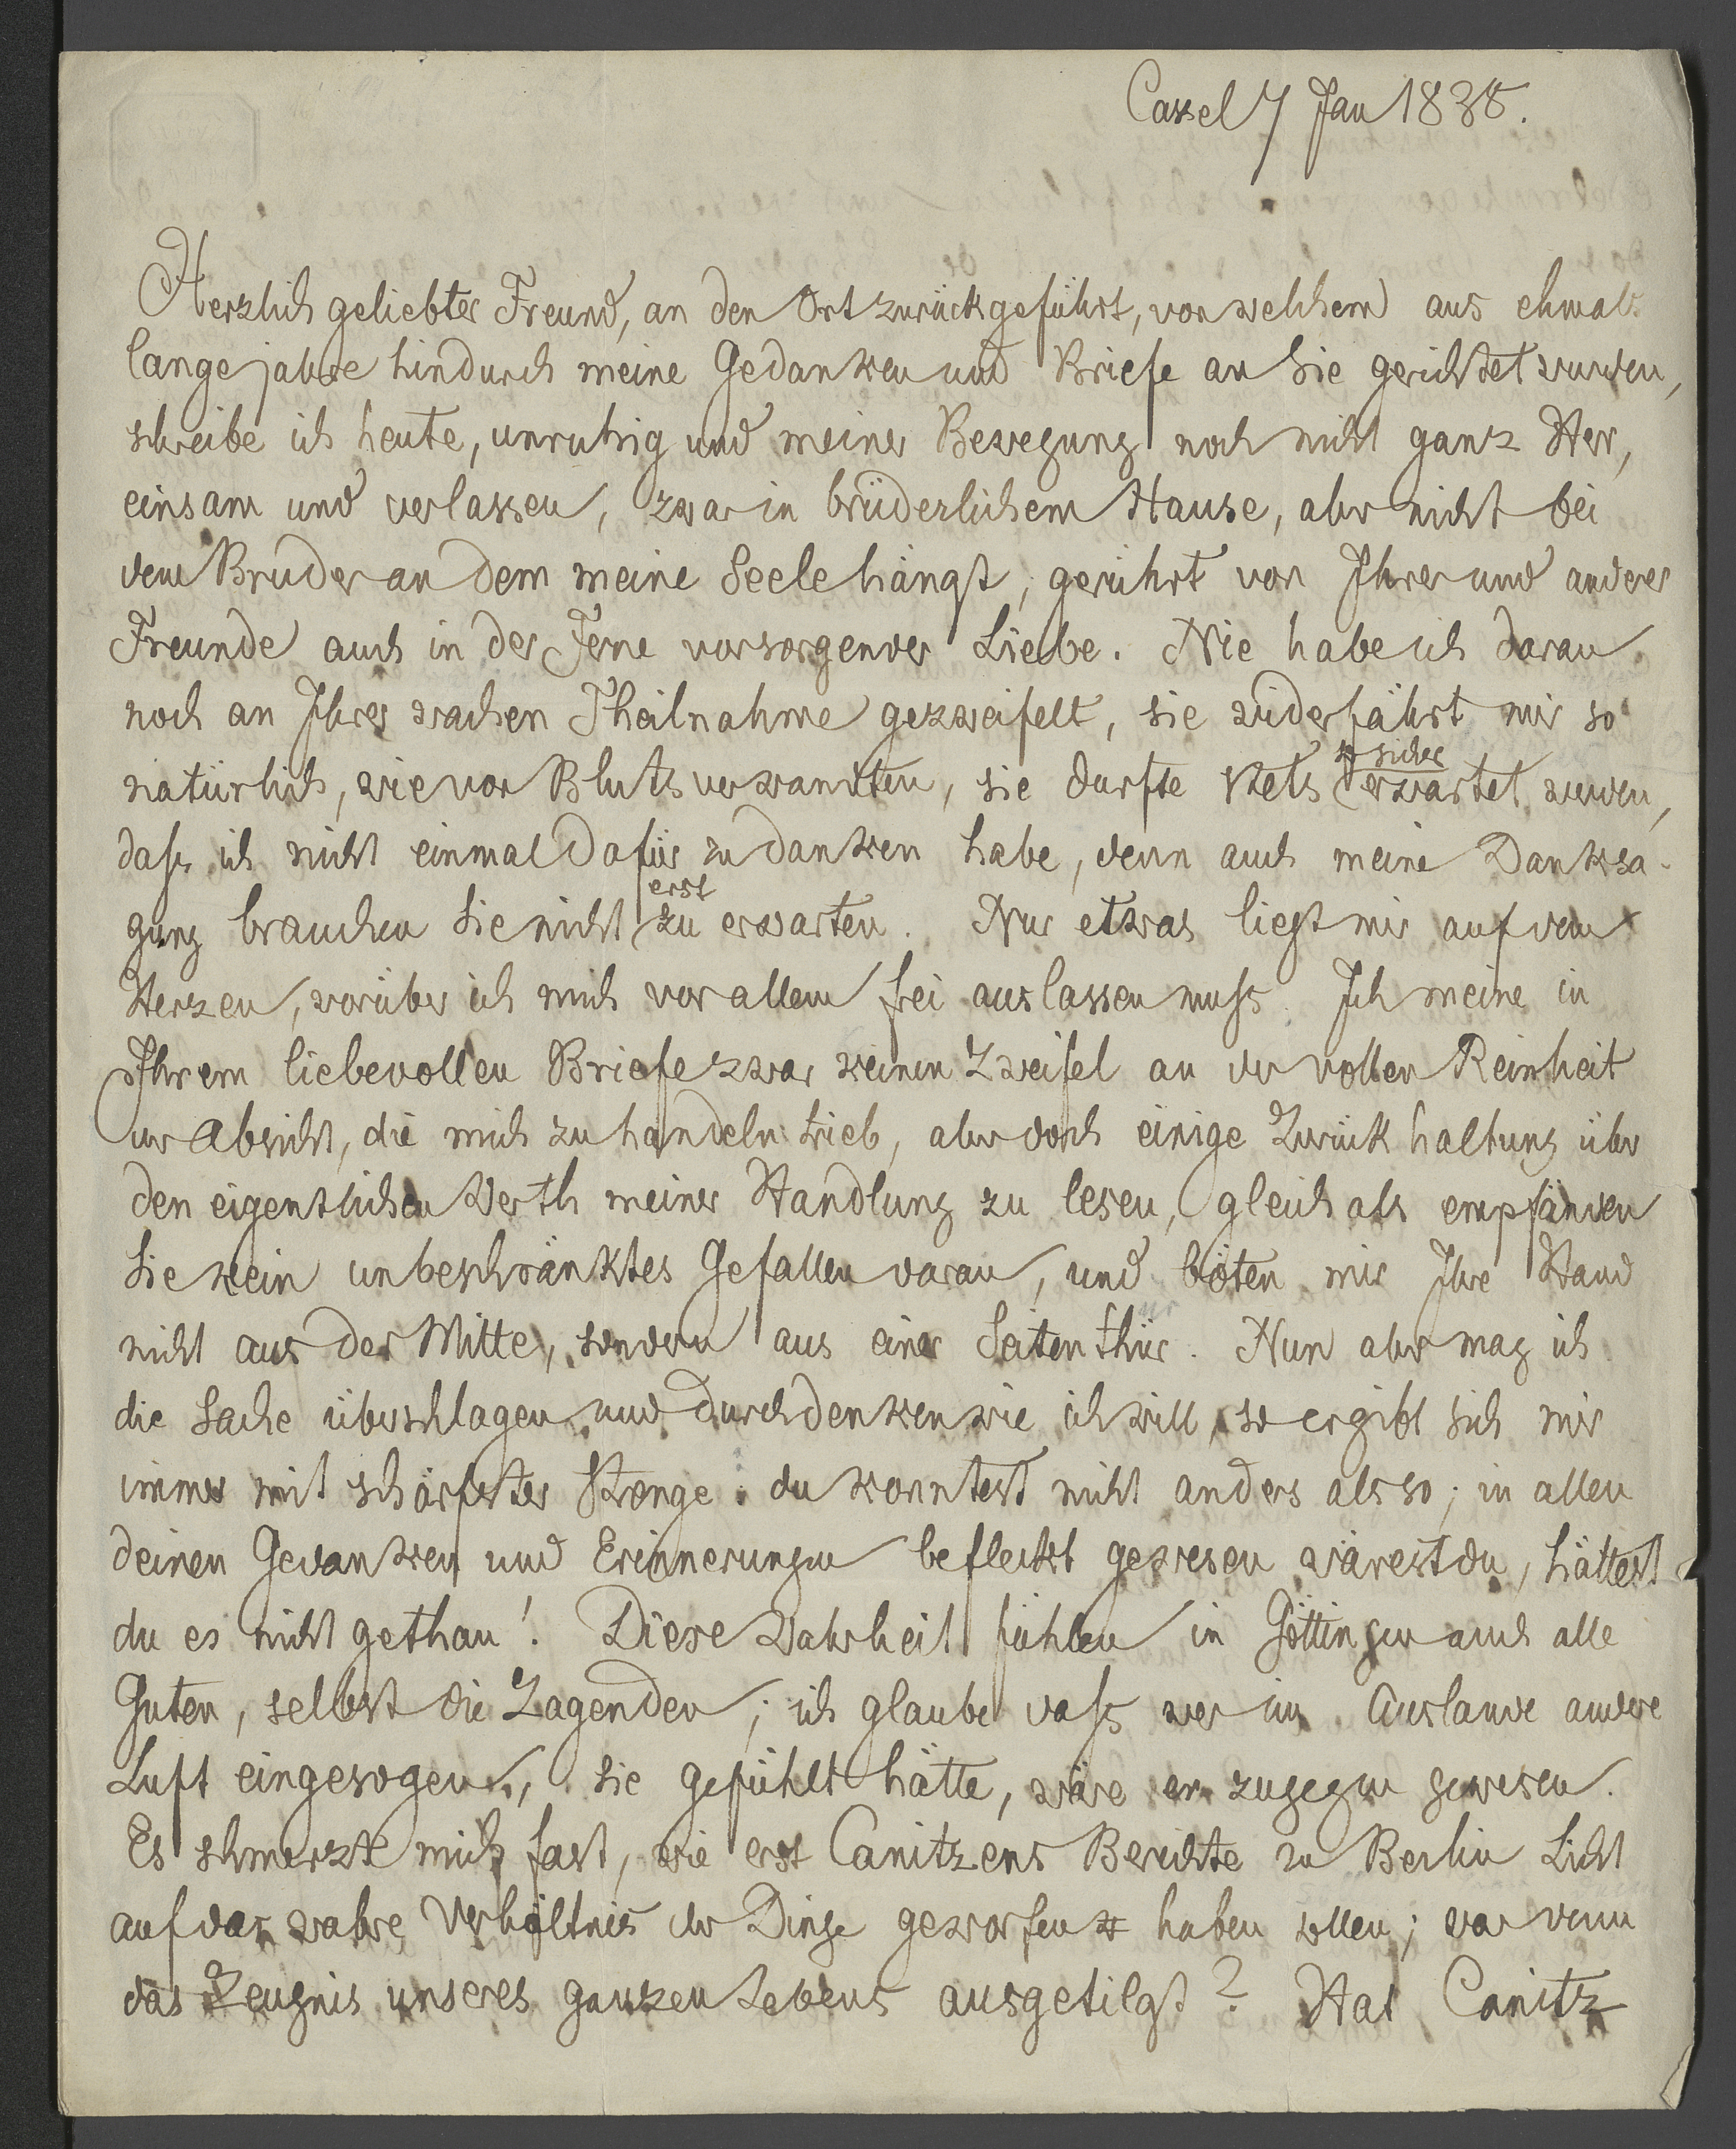 Cassel 7 Jan 1838.
Herzlich geliebter Freund, an den Ort zurückgeführt, von welchem aus ehmals
lange jahre hindurch meine Gedanken und Briefe an Sie gerichtet wurden,
schreibe ich heute, unruhig und meiner Bewegung noch nicht ganz Herr,
einsam und verlassen, zwar in brüderlichem Hause, aber nicht bei
dem Bruder an dem meine Seele hängt, gerührt von Ihrer und anderer
Freunde auch in der Ferne vorsorgender Liebe. Nie habe ich daran
noch an Ihrer wachen Theilnahme gezweifelt, sie widerfährt mir so
natürlich, wie von Blutsverwandten, sie durfte stets so sicher erwartet werden,
dass ich nicht einmal dafür zu danken habe, denn auch meine Danksa-
gung brauchen Sie nicht erst zu erwarten. Nur etwas liegt mir auf dem
Herzen, worüber ich mich vor allem frei auslassen muss. Ich meine in
Ihrem liebevollen Briefe zwar keinen Zweifel an der vollen Reinheit
der Absicht, die mich zu handeln trieb, aber doch einige Zurückhaltung über
den eigentlichen Werth meiner Handlung zu lesen, gleich als empfänden
Sie kein unbeschränktes Gefallen daran, und böten mir Ihre Hand
nicht aus der Mitte, sondern aus einer Seitenthür. Nun aber mag ich
die Sache überschlagen und durchdenken wie ich will, so ergibt sich mir
immer mit schärfster Strenge: du konntest nicht anders als so; in allen
deinen Gedanken und Erinnerungen befleckt gewesen wärest du, hättest
du es nicht gethan! Diese Wahrheit fühlen in Göttingen auch alle
Guten, selbst die Zagenden; ich glaube dass wer im Auslande andere
Luft eingesogen, sie gefühlt hätte, wäre er zugegen gewesen.
Es schmerzte mich fast, wie erst Canitzens Berichte zu Berlin Licht
auf das wahre Verhältnis der Dinge geworfen haben sollen; war denn
das Zeugnis unseres ganzen Lebens ausgetilgt? Hat Canitz